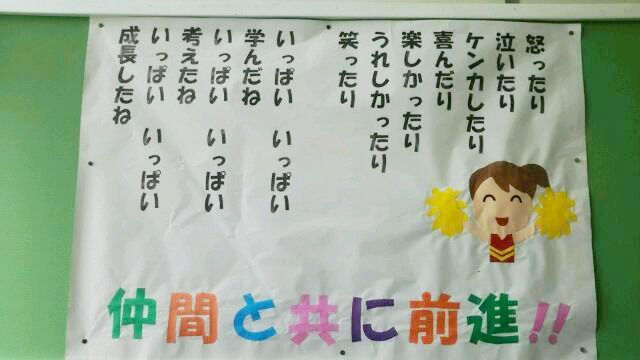 怒ったり
泣いたり
ケンカしたり
喜んだり
楽しかったり
うれしかったり
笑ったり
いっぱい　いっぱい
学んだね
いっぱい　いっぱい
考えたね
いっぱい　いっぱい
成長したね
仲間と共に前進!!